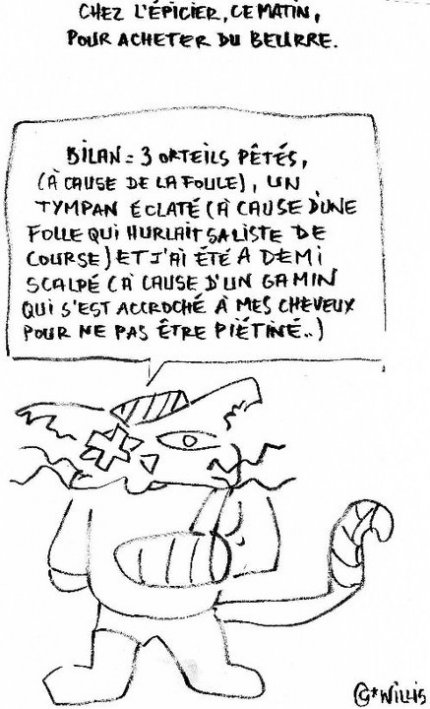 CHEZ L'ÉPICIER, CE MATIN,
POUR ACHETER DU BEURRE.
BILAN = 3 ORTEILS PÉTÉS,
(À CAUSE DE LA FOULE), UN
TYMPAN ÉCLATÉ (À CAUSE D'UNE
FOLLE QUI HURLAIT SA LISTE DE
COURSE) ET J'AI ÉTÉ À DEMI
SCALPÉ (À CAUSE D'UN GAMIN
QUI S'EST ACCROCHÉ À MES CHEVEUX
POUR NE PAS ÊTRE PIÉTINÉ..)
@*WILLIS